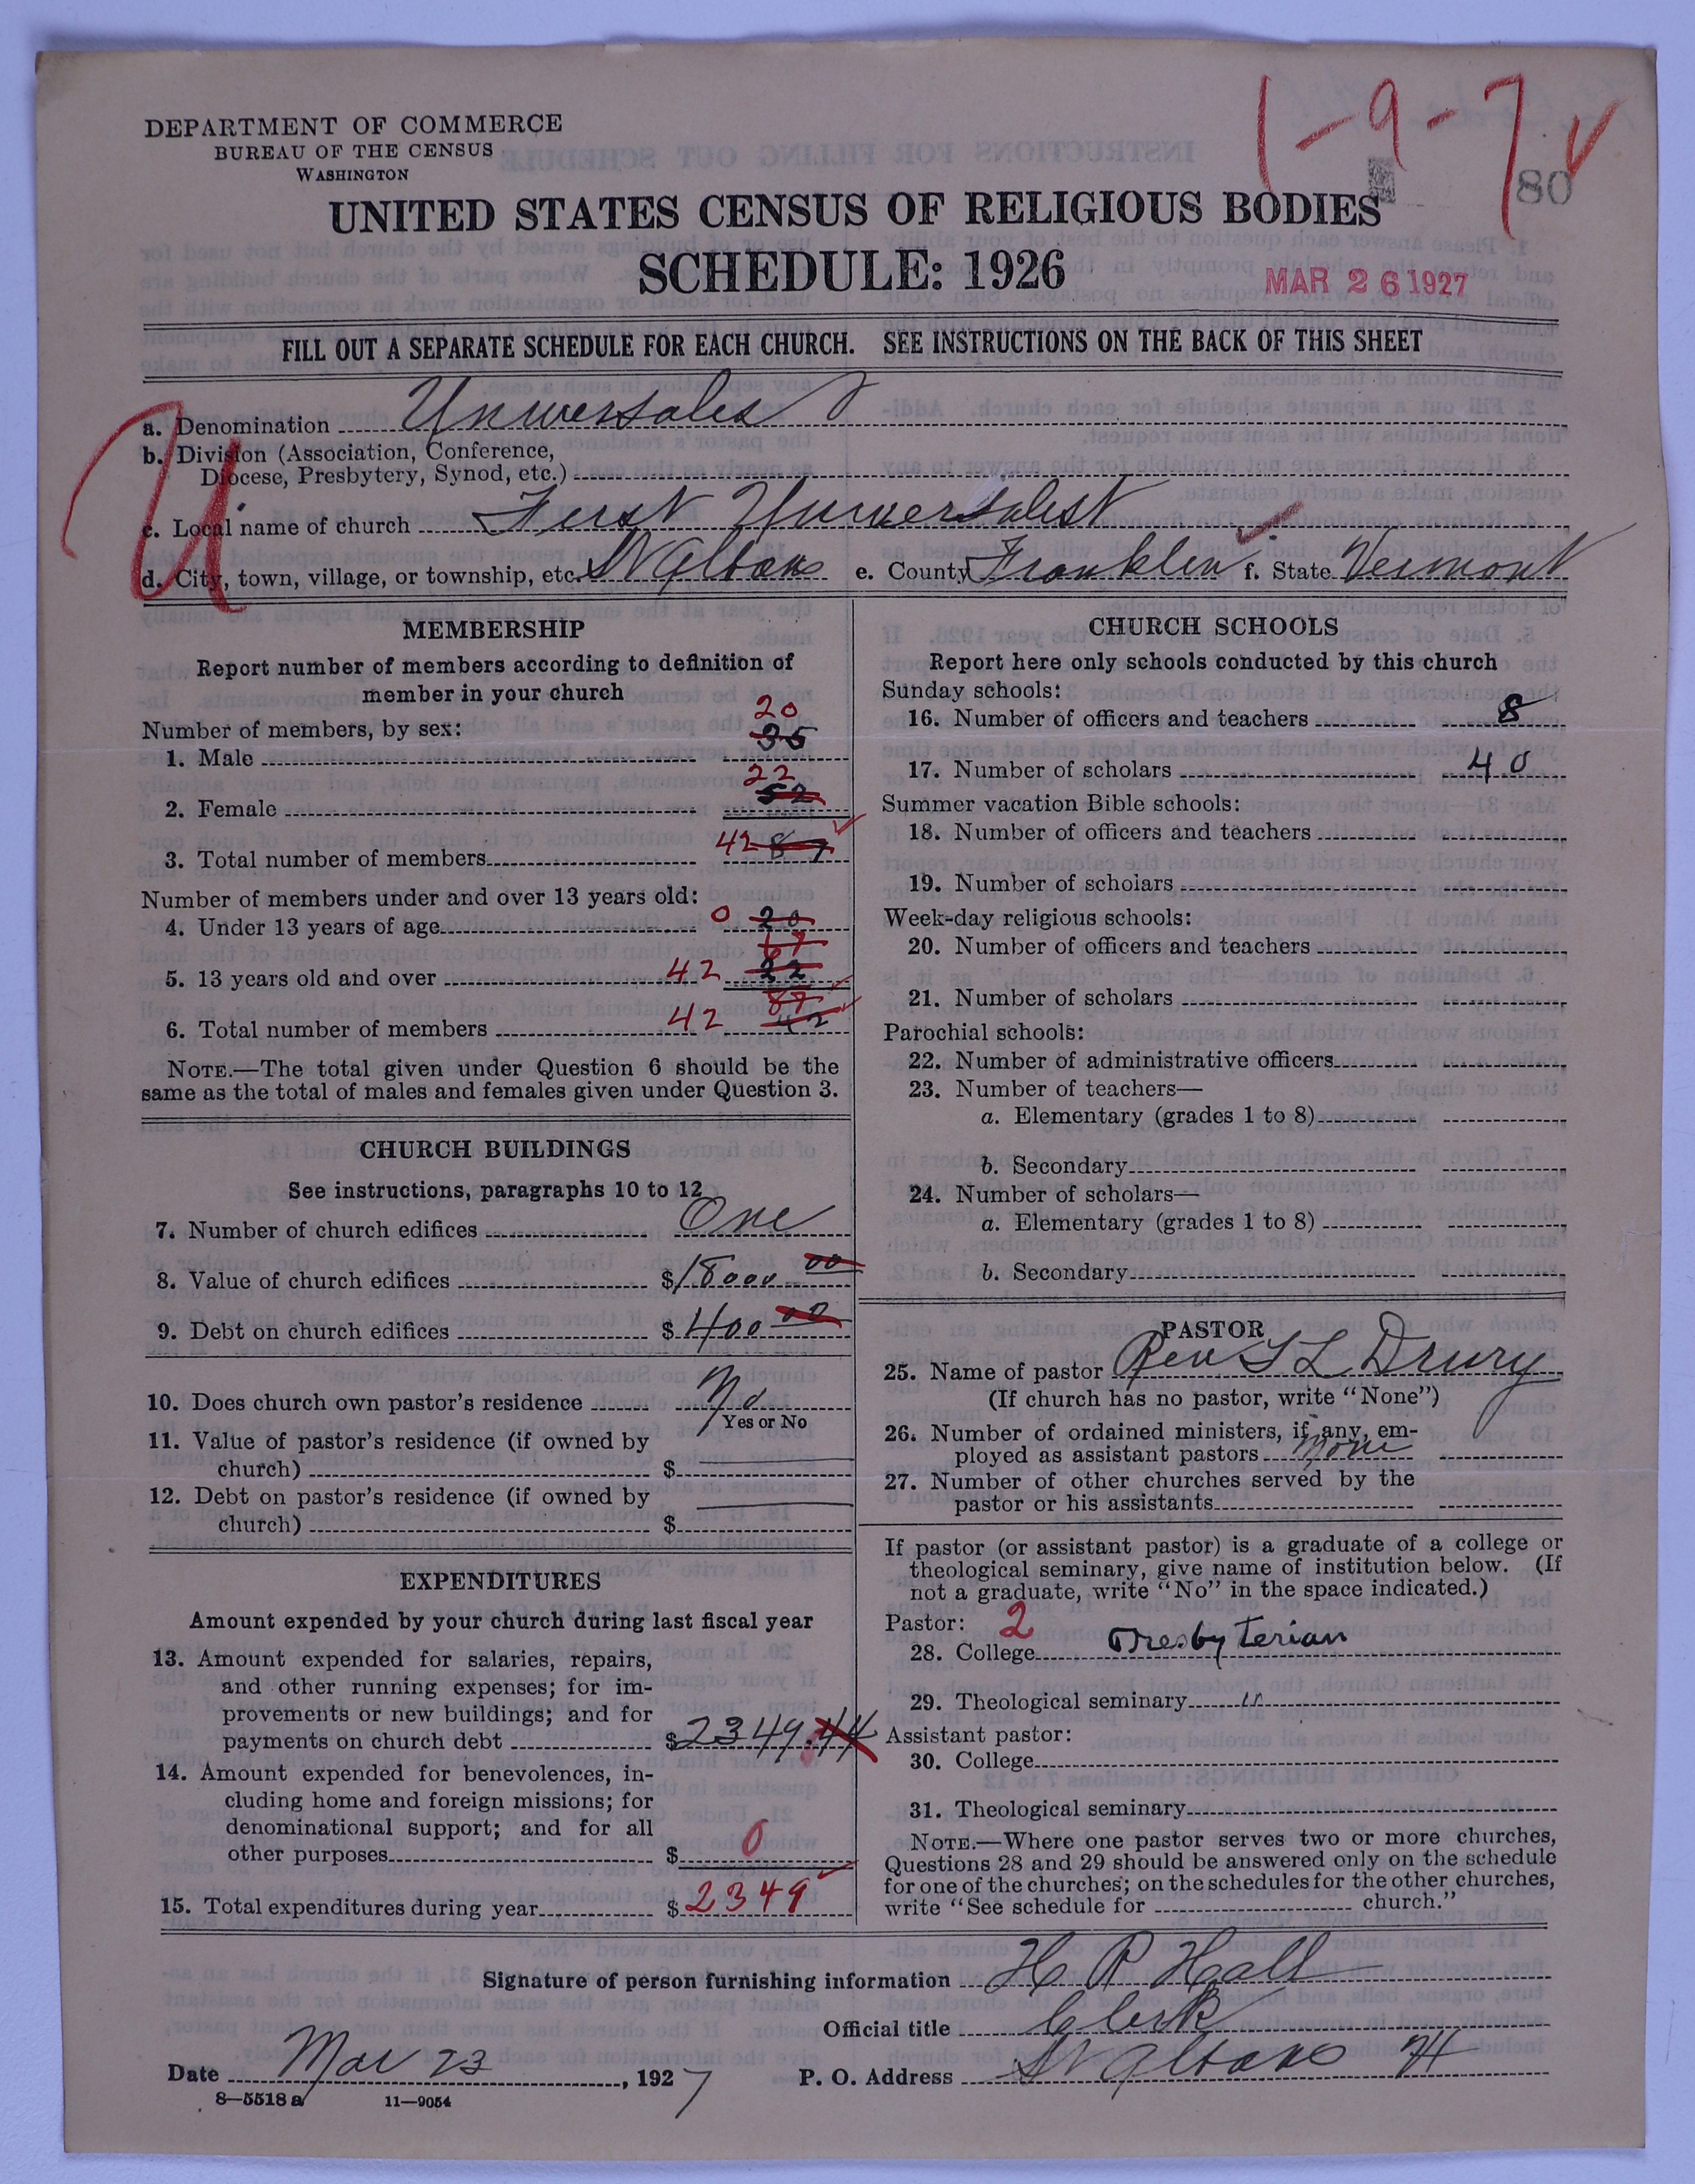 DEPARTMENT OF COMMERCE
BUREAU OF THE CENSUS
WASHINGTON
1-9-7
80
UNITED STATES CENSUS OF RELIGIOUS BODIES
SCHEDULE: 1926
MAR 26 1927
FILL OUT A SEPARATE SCHEDULE FOR EACH CHURCH. SEE INSTRUCTIONS ON THE BACK OF THIS SHEET
U
a. Denomination Universales
b. Division (Association, Conference,
Diocese, Presbytery, Synod, etc.)
c. Local name of church First Universalist
d. City, town, village, or township, etc. St Albans e. County Franklin f. State Vermont
MEMBERSHIP
Report number of members according to definition of
member in your church
Number of members, by sex:
20
1. Male 35
22
2. Female 52
3. Total number of members 42 87
Number of members under and over 13 years old:
4. Under 13 years of age 0 20
67
5. 13 years old and over 42 22
87
6. Total number of members 42 42
NOTE.—The total given under Question 6 should be the
same as the total of males and females given under Question 3.
CHURCH BUILDINGS
See instructions, paragraphs 10 to 12
7. Number of church edifices One
8. Value of church edifices $18000 00
9. Debt on church edifices $400 00
10. Does church own pastor's residence No
Yes or No
11. Value of pastor's residence (if owned by
church) $
12. Debt on pastor's residence (if owned by
church) $
EXPENDITURES
Amount expended by your church during last fiscal year
13. Amount expended for salaries, repairs,
and other running expenses; for im-
provements or new buildings; and for
payments on church debt $2349.44
14. Amount expended for benevolences, in-
cluding home and foreign missions; for
denominational support; and for all
other purposes $ 0
15. Total expenditures during year $2349
CHURCH SCHOOLS
Report here only schools conducted by this church
Sunday schools:
16. Number of officers and teachers 8
17. Number of scholars 40
Summer vacation Bible schools:
18. Number of officers and teachers
19. Number of scholars
Week-day religious schools:
20. Number of officers and teachers
21. Number of scholars
Parochial schools:
22. Number of administrative officers
23. Number of teachers—
a. Elementary (grades 1 to 8)
b. Secondary
24. Number of scholars—
a. Elementary (grades 1 to 8)
b. Secondary
PASTOR
25. Name of pastor Rev L Drury
(If church has no pastor, write "None")
26. Number of ordained ministers, if any, em-
ployed as assistant pastors None
27. Number of other churches served by the
pastor or his assistants
If pastor (or assistant pastor) is a graduate of a college or
theological seminary, give name of institution below. (If
not a graduate, write "No" in the space indicated.)
Pastor: 2
28. College Presbyterian
29. Theological seminary "
Assistant pastor:
30. College
31. Theological seminary
NOTE.—Where one pastor serves two or more churches,
Questions 28 and 29 should be answered only on the schedule
for one of the churches; on the schedules for the other churches,
write "See schedule for church."
Signature of person furnishing information H P Hall
Official title Clerk
Date Mar 23, 1927 P. O. Address St Albans Vt
8—5518 a 11—9054